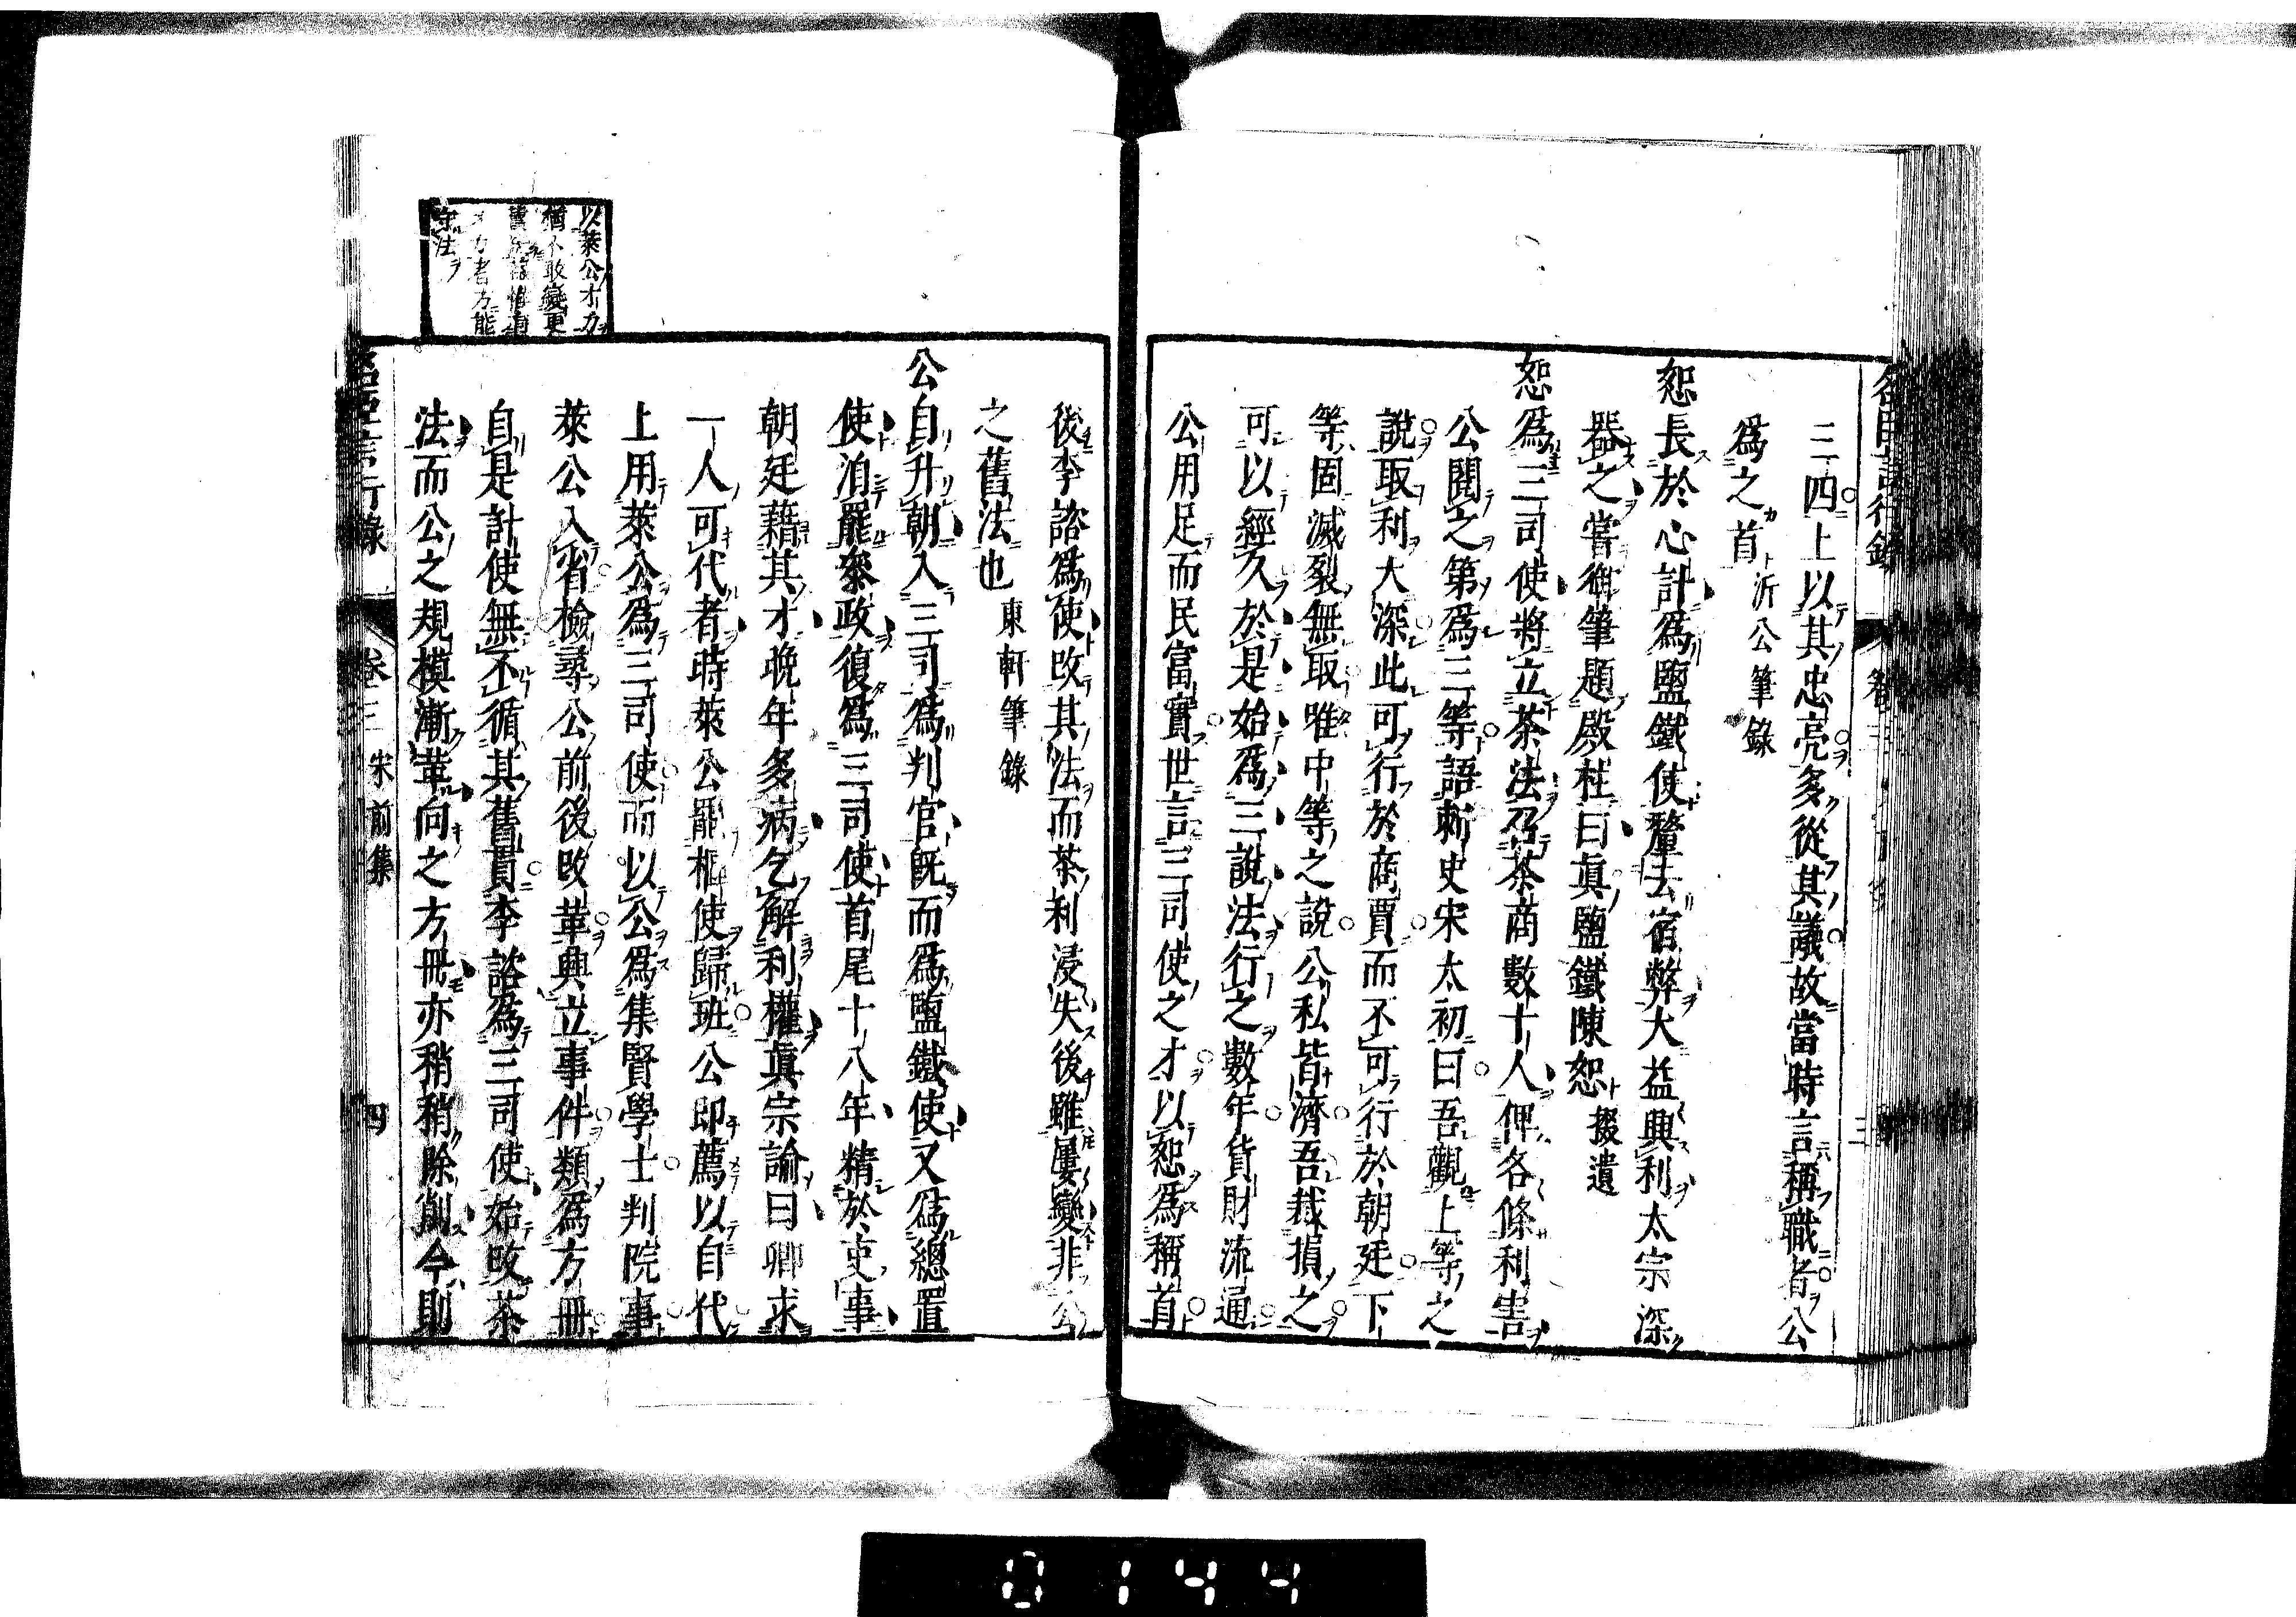 三四上以其忠亮多從其議故當時言稱職者公
爲之首 沂公筆錄
恕長於心計爲鹽鐵使釐去宿弊大益興利太宗深
器之嘗御筆題殿柱曰眞鹽鐵陳恕 掇遺
恕爲三司使將立茶法召茶商數十人俾各條利害
公閱之第爲三等語刺史宋太初曰吾觀上等之
說取利大深此可行於商賈而不可行於朝廷下
等固滅裂無取唯中等之說公私皆濟吾裁損之
可以經久於是始爲三說法行之數年貨財流通
公用足而民富實世言三司使之才以恕爲稱首
後李諮爲使改其法而茶利浸失後雖屢變非公
之舊法也 東軒筆錄
公自升朝入三司爲判官既而爲鹽鐵使又爲總置
使洎罷參政復爲三司使首尾十八年精於吏事
朝廷藉其才晚年多病乞解利權眞宗諭曰卿求
一人可代者時萊公罷樞使歸班公即薦以自代
上用萊公爲三司使而以公爲集賢學士判院事
萊公入省檢尋公前後改革興立事件類爲方冊
自是計使無不循其舊貫李諮爲三司使始改茶
法而公之規模漸革向之方冊亦稍稍除削今則
以萊公才力
猶不敢變更
者方能
守法
言行錄 卷三 宋前集 四